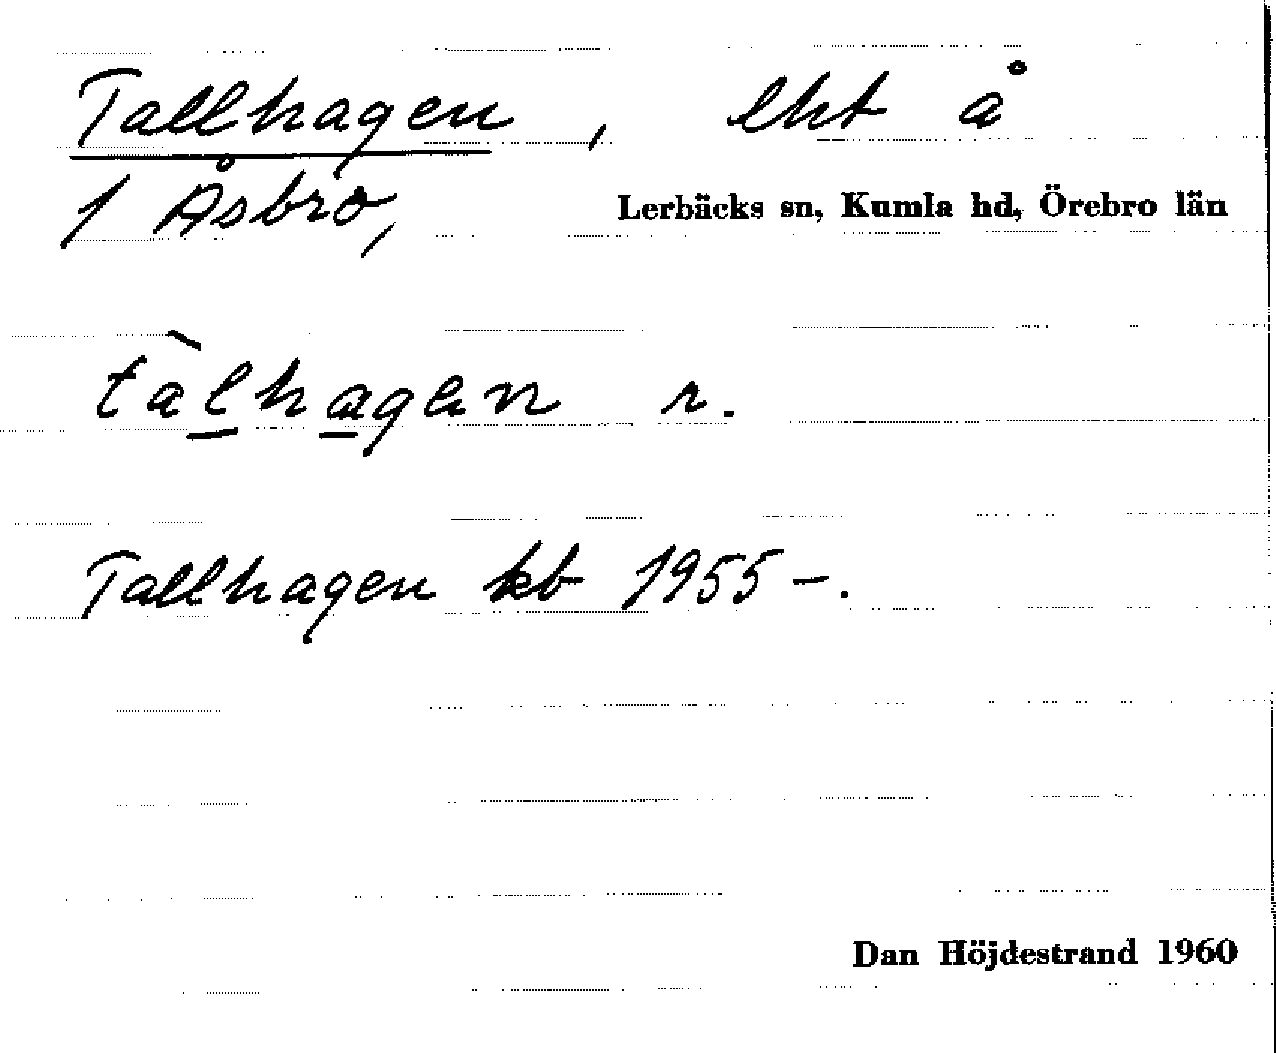 Tallhagen, lht å
1 Åsbro,
Lerbäcks sn, Kumla hd, Örebro län
tàlhagen r.
Tallhagen kb 1955 –.
Dan Höjdestrand 1960